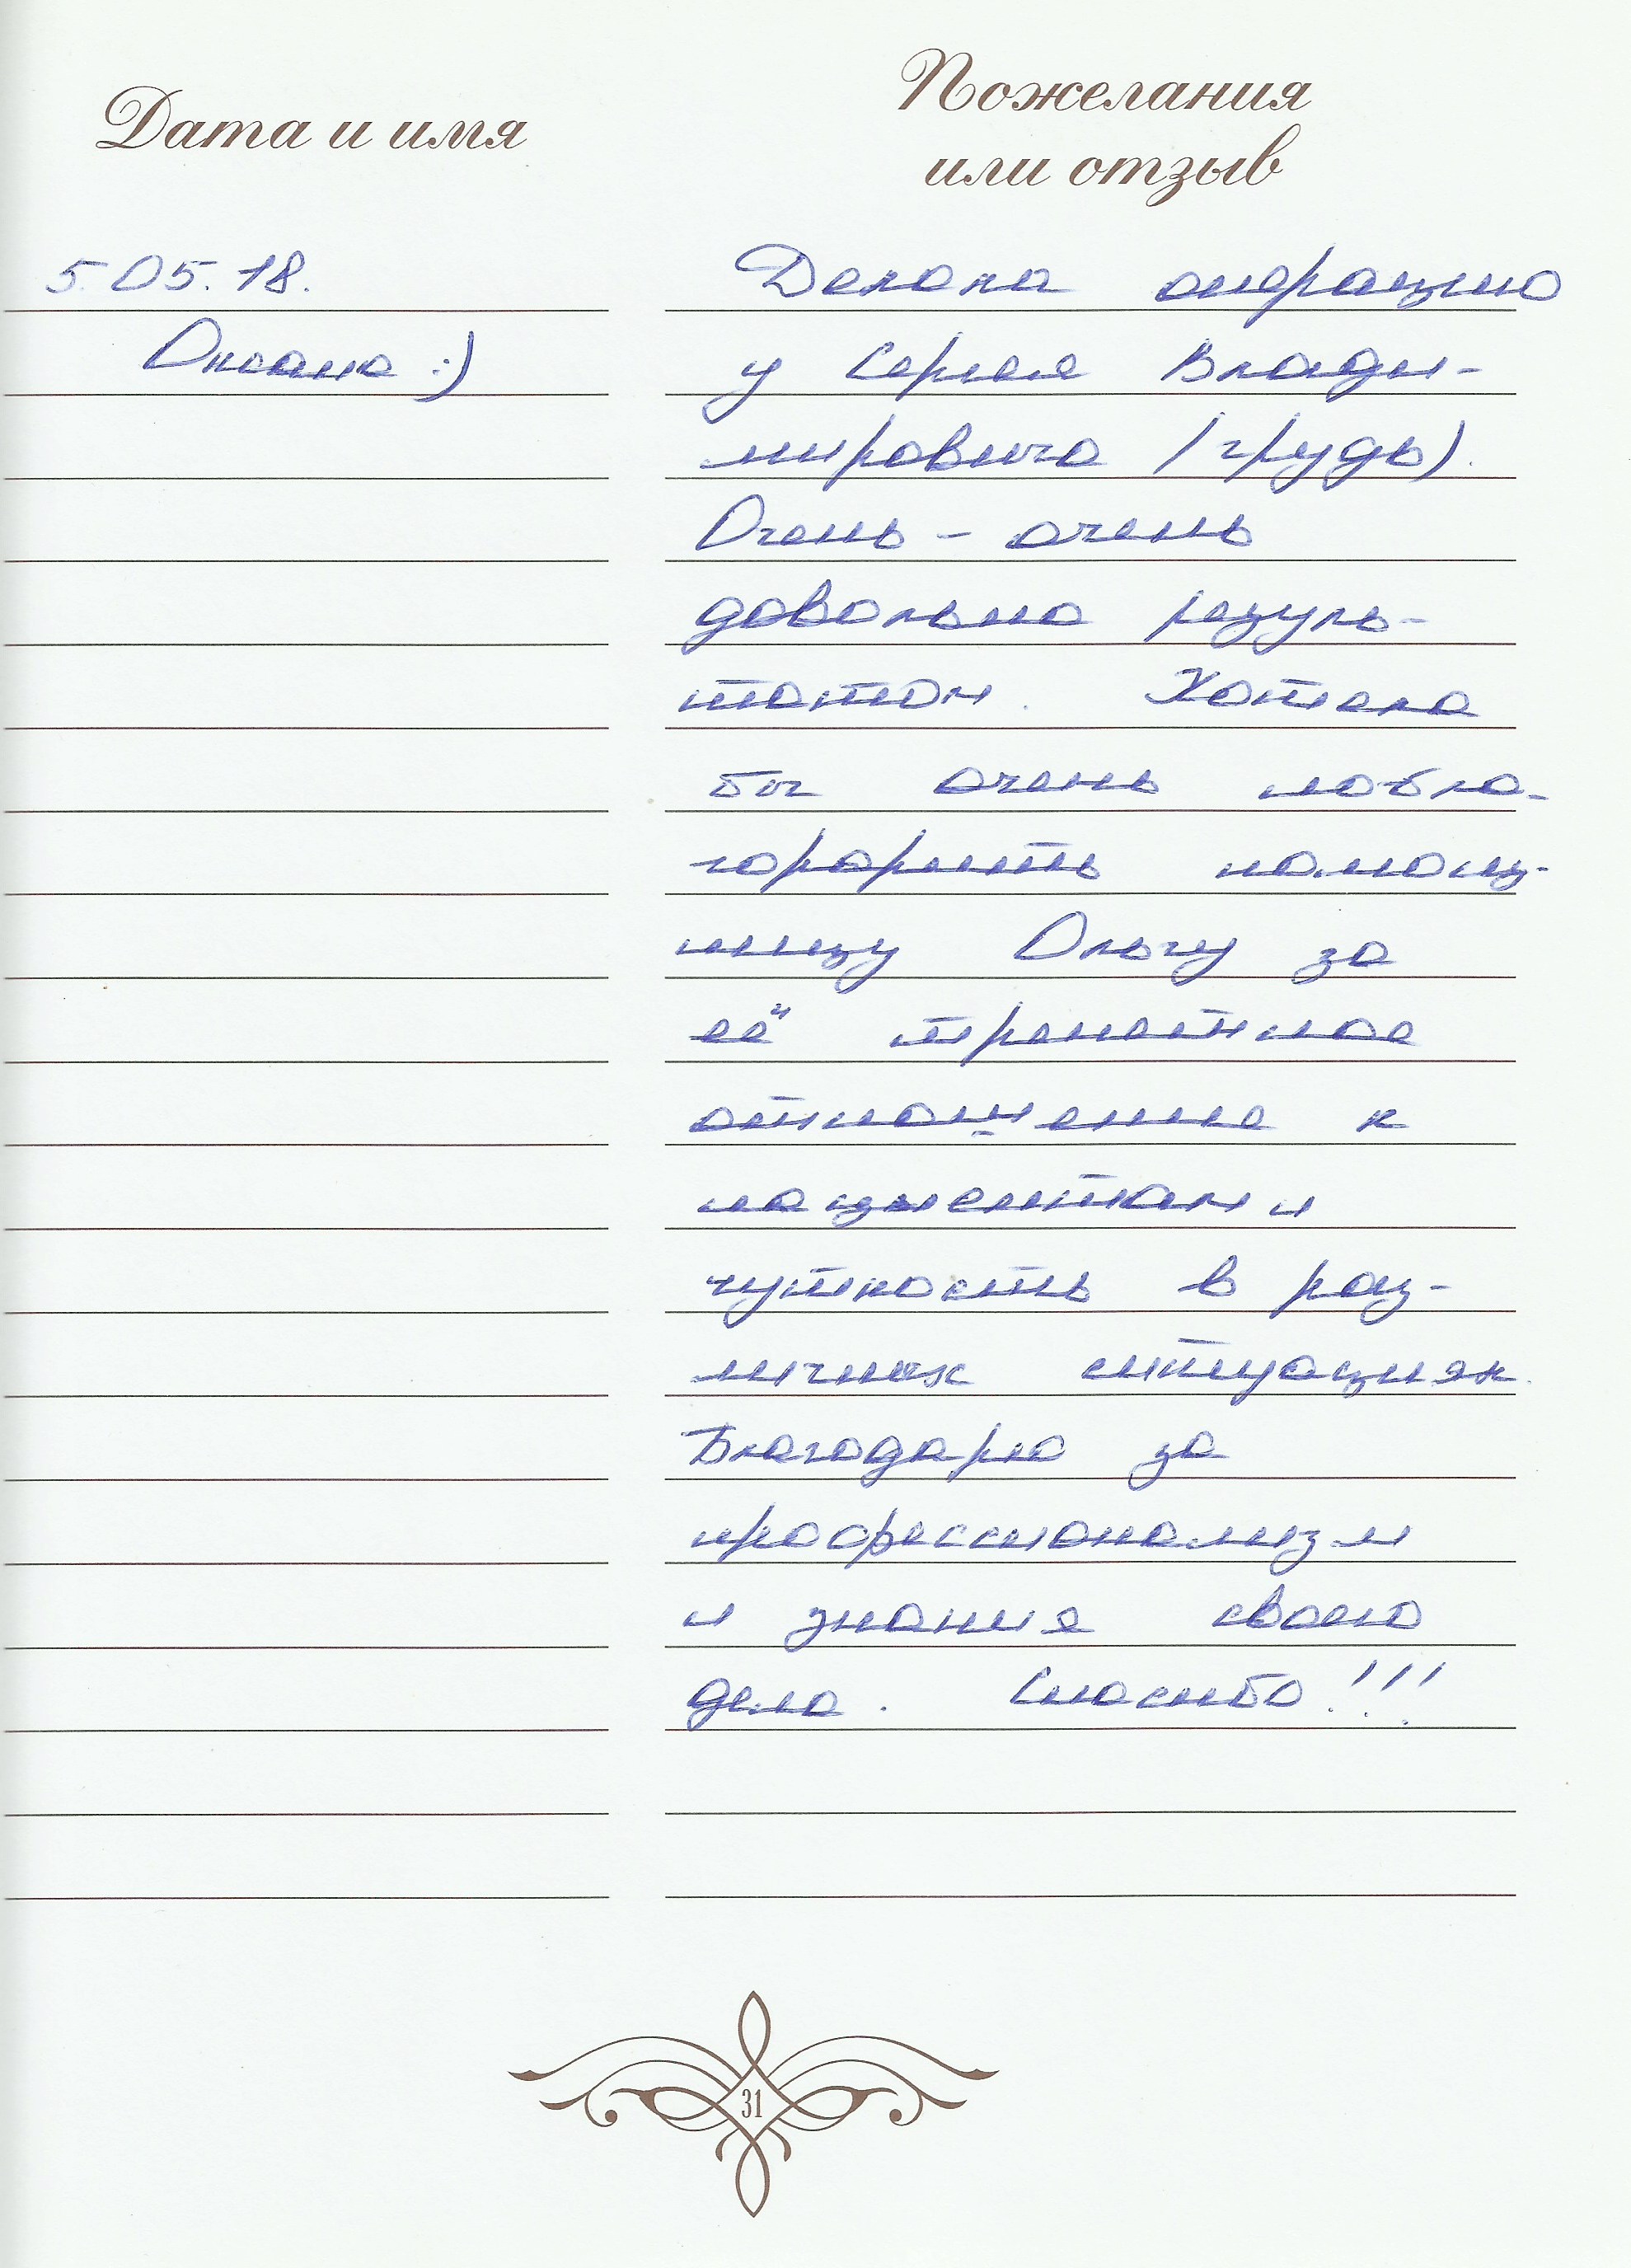 Дата и имя
Пожелания
или отзыв
5.05.18.
Оксана :)
Делала операцию
у Сергея Влади-
мировича (грудь).
Очень - очень
довольна резуль-
татом. Хотела
бы очень побла-
горорить помощ-
ницу Ольгу за
её трепетное
отношение к
пациентам и
чуткость в раз-
личных ситуациях.
Благодарю за
профессионализм
и знания своего
дела. Спасибо!!!
31